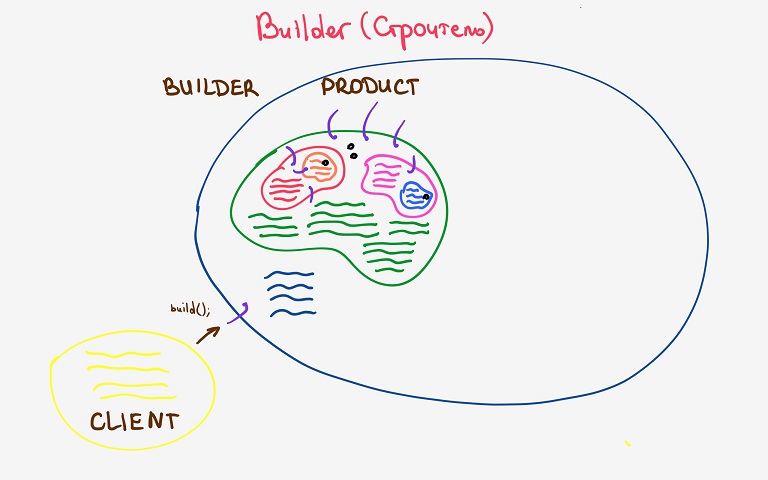 Builder (Строитель)
BUILDER PRODUCT
build();
CLIENT